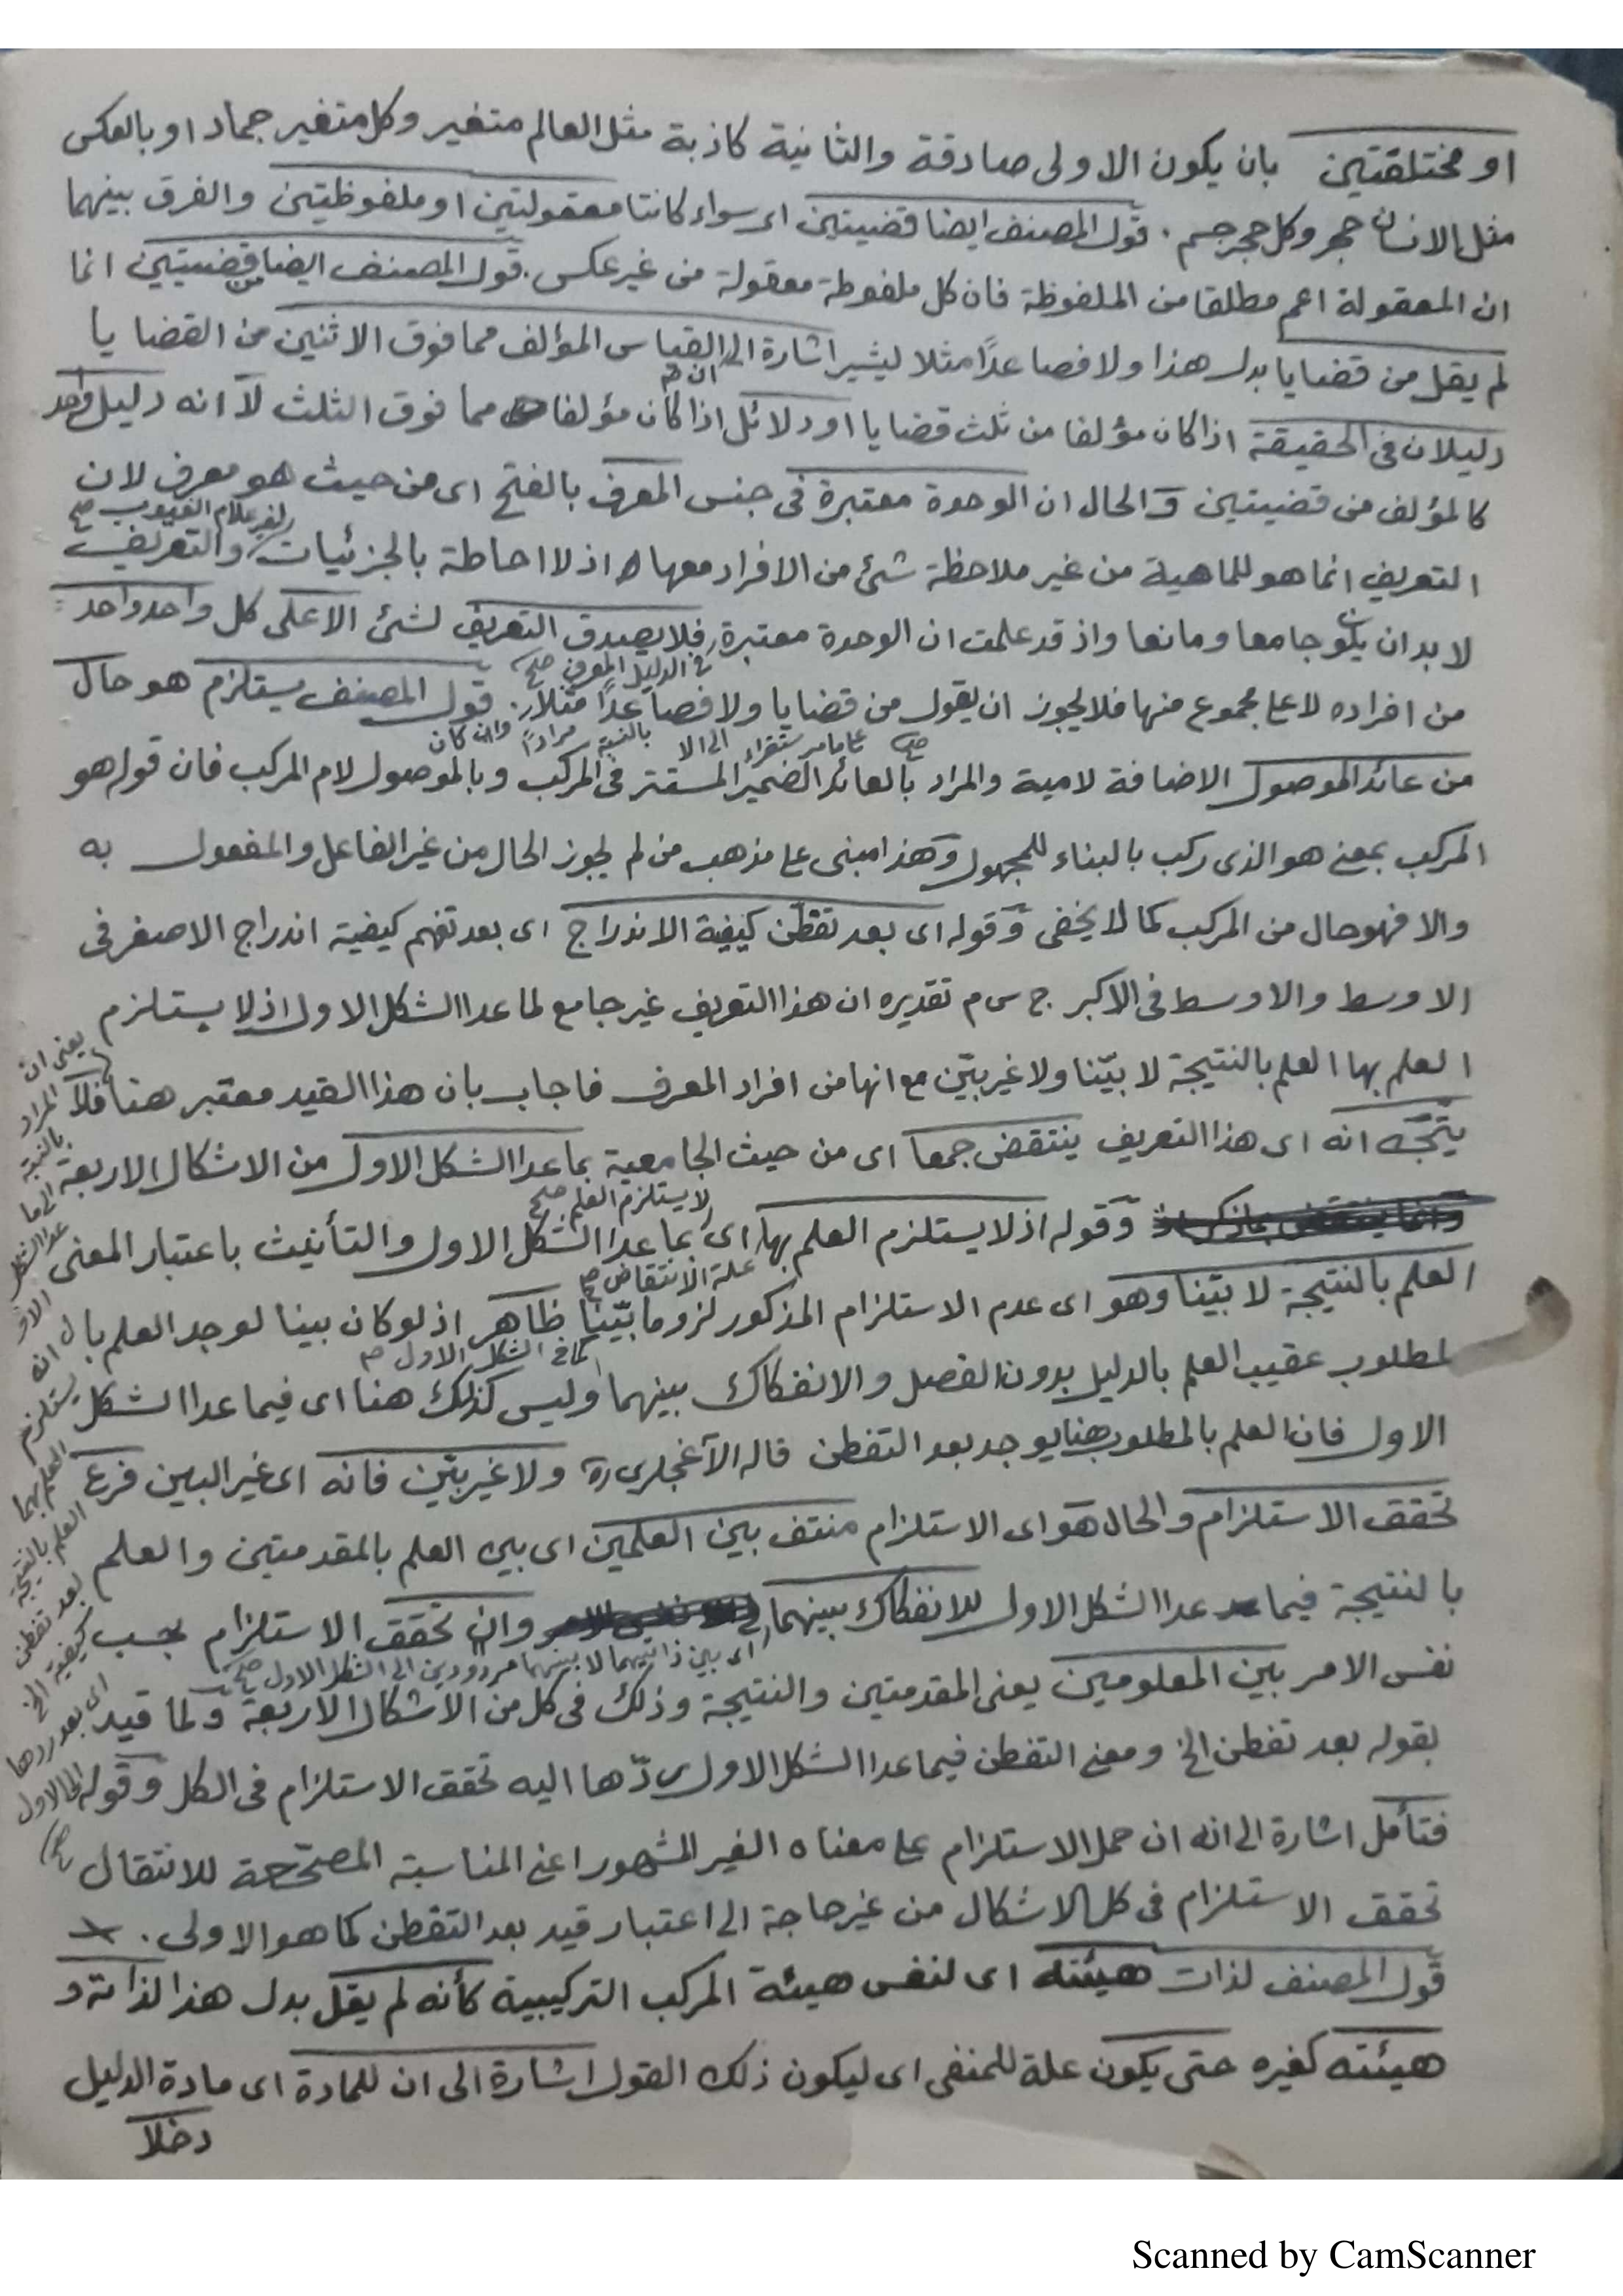 او مختلقتين بان يكون الاولى صادقة والثانية كاذبة مثل العالم متغير وكل متغير جماد او بالعكس
مثل الانسان حجر وكل حجر جسم . قول المصنف ايضا قضيتين اى سواء كانتا معقولتين او ملفوظتين والفرق بينهما
ان المعقولة اعم مطلقا من الملفوظة فان كل ملفوظة معقولة من غير عكس . قول المصنف ايضا من قضيتين انما
لم يقل من قضايا بدل هذا ولا فصاعدًا مثلا ليشير اشارة الى ان القياس المؤلف مما فوق الاثنين من القضايا
دليلان فى الحقيقة اذا كان مؤلفا من ثلث قضايا او دلائل اذا كان مؤلفا مما فوق الثلث لا انه دليل واحد
كالمؤلف من قضيتين والحال ان الوحدة معتبرة فى جنس المعرف بالفتح اى من حيث هو معرف لان
لغير علام الغيوب صح
التعريف انما هو للماهية من غير ملاحظة شئ من الافراد معها اذ لا احاطة بالجزئيات والتعريف
لا بد ان يكون جامعا ومانعا واذ قد علمت ان الوحدة معتبرة فلا يصدق التعريف لشئ الا على كل واحد واحد
فى الدليل المعرف صح
من افراده لا على مجموع منها فلا يجوز ان يقول من قضايا ولا فصاعدًا مثلا . قول المصنف يستلزم هو حال
من عائد الموصول الاضافة لامية والمراد بالعائد الضمير المستتر فى المركب وبالموصول لام المركب فان قوله هو
المركب بمعنى هو الذى ركب بالبناء للمجهول وهذا مبنى على مذهب من لم يجوز الحال من غير الفاعل والمفعول به
والا فهو حال من المركب كما لا يخفى وقوله اى بعد تفطن كيفية الاندراج اى بعد تفهم كيفية اندراج الاصغر فى
الاوسط والاوسط فى الاكبر ج س م تقديره ان هذا التعريف غير جامع لما عدا الشكل الاول اذ لا يستلزم
العلم بها العلم بالنتيجة لا بيّنا ولا غير بيّن مع انها من افراد المعرف فاجاب بان هذا القيد معتبر هنا فلا
يتّجه انه اى هذا التعريف ينتقض جمعا اى من حيث الجامعية بما عدا الشكل الاول من الاشكال الاربعة
لا يستلزم العلم صح
وقوله اذ لا يستلزم العلم بها اى بما عدا الشكل الاول والتأنيث باعتبار المعنى
علة الانتقاض صح
العلم بالنتيجة لا بيّنا وهو اى عدم الاستلزام المذكور لزوما بيّنا ظاهر اذ لو كان بينا لوجد العلم بال
كما فى الشكل الاول صح
لمطلوب عقيب العلم بالدليل بدون الفصل والانفكاك بينهما وليس كذلك هنا اى فيما عدا الشكل
الاول فان العلم بالمطلوب هنا يوجد بعد التفطن قاله الآغجلرى ره ولا غير بيّن فانه اى غير البين فرع
تحقق الاستلزام والحال هو اى الاستلزام منتف بين العلمين اى بين العلم بالمقدمتين والعلم
بالنتيجة فيما عدا الشكل الاول للانفكاك بينهما وان تحقق الاستلزام بحسب
اى بين ذاتيهما لا بينهما مردودين الى الشكل الاول صح
نفس الامر بين المعلومين يعنى المقدمتين والنتيجة وذلك فى كل من الاشكال الاربعة ولما قيد
بقوله بعد تفطن الخ ومعنى التفطن فيما عدا الشكل الاول ردّها اليه تحقق الاستلزام فى الكل وقوله
فتأمل اشارة الى انه ان حمل الاستلزام على معناه الغير المشهور اعنى المناسبة المصحّحة للانتقال
تحقق الاستلزام فى كل الاشكال من غير حاجة الى اعتبار قيد بعد التفطن كما هو الاولى .
قول المصنف لذات هيئته اى لنفس هيئة المركب التركيبية كأنه لم يقل بدل هذا لذاته و
هيئته كغيره حتى يكون علة للمنفى اى ليكون ذلك القول اشارة الى ان للمادة اى مادة الدليل
دخلا
يعنى ان
المراد
بالنسبة
الى ما
عدا الشكل
الاو
ل انه
يستلزم
العلم بهما
العلم بالنتيجة
بعد تفطن
كيفية الخ
اى بعد ردها
الى الاول
صح
Scanned by CamScanner